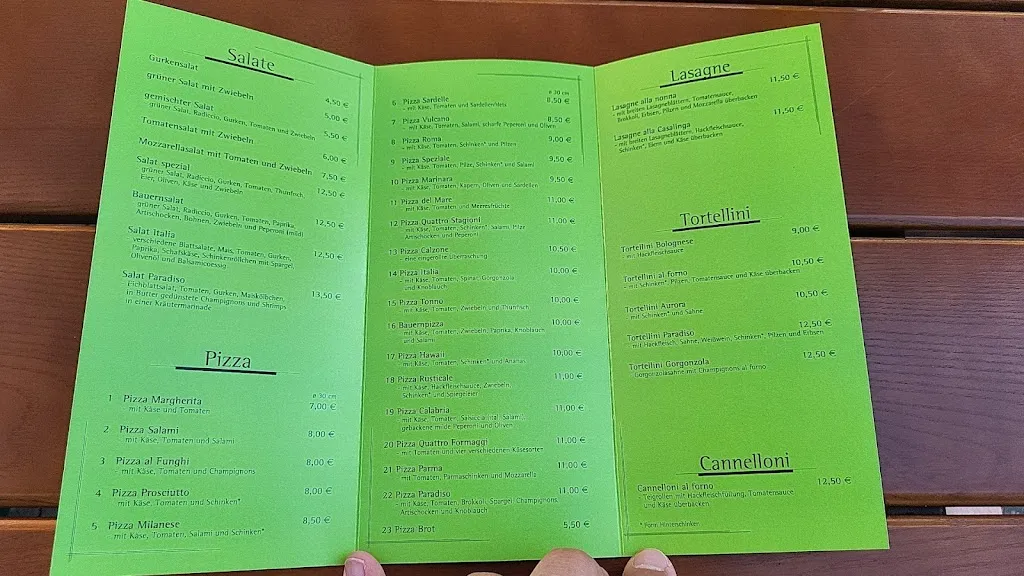 Salate
Gurkensalat 4,50 €
grüner Salat mit Zwiebeln 5,00 €
gemischter Salat 5,50 €
grüner Salat, Radiccio, Gurken, Tomaten und Zwiebeln
Tomatensalat mit Zwiebeln 6,00 €
Mozzarellasalat mit Tomaten und Zwiebeln 7,50 €
Salat spezial 12,50 €
grüner Salat, Radiccio, Gurken, Tomaten, Thunfisch,
Eier, Oliven, Käse und Zwiebeln
Bauernsalat 12,50 €
grüner Salat, Radiccio, Gurken, Tomaten, Paprika,
Artischocken, Bohnen, Zwiebeln und Peperoni (mild)
Salat Italia 12,50 €
verschiedene Blattsalate, Mais, Tomaten, Gurken,
Paprika, Schafskäse, Schinkenröllchen mit Spargel,
Olivenöl und Balsamicoessig
Salat Paradiso 13,50 €
Eichblattsalat, Tomaten, Gurken, Maiskölbchen,
in Butter gedünstete Champignons und Shrimps
in einer Kräutermarinade
Pizza
ø 30 cm
1 Pizza Margherita 7,00 €
- mit Käse und Tomaten
2 Pizza Salami 8,00 €
- mit Käse, Tomaten und Salami
3 Pizza al Funghi 8,00 €
- mit Käse, Tomaten und Champignons
4 Pizza Prosciutto 8,00 €
- mit Käse, Tomaten und Schinken*
5 Pizza Milanese 8,50 €
- mit Käse, Tomaten, Salami und Schinken*
ø 30 cm
6 Pizza Sardelle 8,50 €
- mit Käse, Tomaten und Sardellenfilets
7 Pizza Vulcano 8,50 €
- mit Käse, Tomaten, Salami, scharfe Peperoni und Oliven
8 Pizza Roma 9,00 €
- mit Käse, Tomaten, Schinken* und Pilzen
9 Pizza Speziale 9,50 €
- mit Käse, Tomaten, Pilze, Schinken* und Salami
10 Pizza Marinara 9,50 €
- mit Käse, Tomaten, Kapern, Oliven und Sardellen
11 Pizza del Mare 11,00 €
- mit Käse, Tomaten und Meeresfrüchte
12 Pizza Quattro Stagioni 11,00 €
- mit Käse, Tomaten, Schinken*, Salami, Pilze
Artischocken und Peperoni
13 Pizza Calzone 10,50 €
- eine eingerollte Überraschung
14 Pizza Italia 10,00 €
- mit Käse, Tomaten, Spinat, Gorgonzola
und Knoblauch
15 Pizza Tonno 10,00 €
- mit Käse, Tomaten, Zwiebeln und Thunfisch
16 Bauernpizza 10,00 €
- mit Käse, Tomaten, Zwiebeln, Paprika, Knoblauch
und Salami
17 Pizza Hawaii 10,00 €
- mit Käse, Tomaten, Schinken* und Ananas
18 Pizza Rusticale 11,00 €
- mit Käse, Hackfleischsauce, Zwiebeln,
Schinken* und Spiegeleier
19 Pizza Calabria 11,00 €
- mit Käse, Tomaten, Salsiccia (ital. Salami),
gebackene milde Peperoni und Oliven
20 Pizza Quattro Formaggi 11,00 €
- mit Tomaten und vier verschiedenen Käsesorten
21 Pizza Parma 11,00 €
- mit Tomaten, Parmaschinken und Mozzarella
22 Pizza Paradiso 11,00 €
- mit Käse, Tomaten, Brokkoli, Spargel, Champignons,
Artischocken und Knoblauch
23 Pizza Brot 5,50 €
Lasagne
Lasagne alla nonna 11,50 €
- mit breiten Lasagneblättern, Tomatensauce,
Brokkoli, Erbsen, Pilzen und Mozzarella überbacken
Lasagne alla Casalinga 11,50 €
- mit breiten Lasagneblättern, Hackfleischsauce,
Schinken*, Eiern und Käse überbacken
Tortellini
Tortellini Bolognese 9,00 €
- mit Hackfleischsauce
Tortellini al forno 10,50 €
- mit Schinken*, Pilzen, Tomatensauce und Käse überbacken
Tortellini Aurora 10,50 €
- mit Schinken* und Sahne
Tortellini Paradiso 12,50 €
- mit Hackfleisch, Sahne, Weißwein, Schinken*, Pilzen und Erbsen
Tortellini Gorgonzola 12,50 €
Gorgonzolasahne mit Champignons al forno
Cannelloni
Cannelloni al forno 12,50 €
- Teigrollen mit Hackfleischfüllung, Tomatensauce
und Käse überbacken
* Form Hinterschinken